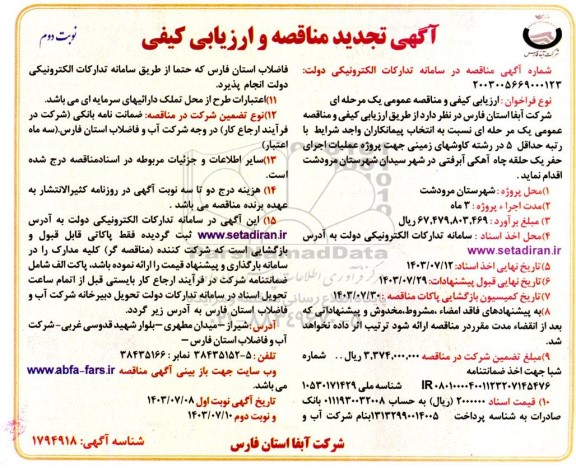 آگهی تجدید مناقصه و ارزیابی کیفی
نوبت دوم
شرکت آبفا فارس
شماره آگهی مناقصه در سامانه تدارکات الکترونیکی دولت:
۲۰۰۳۰۰۵۶۶۹۰۰۰۱۲۳
نوع فراخوان : ارزیابی کیفی و مناقصه عمومی یک مرحله ای
شرکت آبفا استان فارس در نظر دارد از طریق ارزیابی کیفی و مناقصه
عمومی یک مر حله ای نسبت به انتخاب پیمانکاران واجد شرایط با
رتبه حداقل ۵ در رشته کاوشهای زمینی جهت پروژه عملیات اجرای
حفر یک حلقه چاه آهکی آبرفتی در شهر سیدان شهرستان مرودشت
اقدام نماید .
۱)محل پروژه : شهرستان مرودشت
۲)مدت اجراء پروژه : ۳ ماه
۳)مبلغ برآورد : ۶۷,۴۷۹,۸۰۳,۴۶۹ ریال
۴)محل اخذ اسناد : سامانه تدارکات الکترونیکی دولت به آدرس
www.setadiran.ir
۵)تاریخ نهایی اخذ اسناد: ۱۴۰۳/۰۷/۱۲
۶)تاریخ نهایی قبول پیشنهادات: ۱۴۰۳/۰۷/۲۹
۷)تاریخ کمیسیون بازگشایی پاکات مناقصه : ۱۴۰۳/۰۷/۳۰
۸)به پیشنهادهای فاقد امضاء ،مشروط،مخدوش و پیشنهاداتی که
بعد از انقضاء مدت مقرردر مناقصه ارائه شود ترتیب اثر داده نخواهد
شد.
۹)مبلغ تضمین شرکت در مناقصه ۳,۳۷۴,۰۰۰,۰۰۰ ریال . . شماره
شبا جهت اخذ ضمانتنامه
شناسه ملی ۱۰۵۳۰۱۷۱۴۲۹
۱۰) قیمت اسناد ۲۰۰۰۰۰۰ (ریال) به حساب ۰۱۱۱۹۳۰۰۳۲۰۰۸ بانک
صادرات به شناسه پرداخت بنام شرکت آب و
فاضلاب استان فارس که حتما از طریق سامانه تدارکات الکترونیکی
دولت انجام پذیرد.
۱۱)اعتبارات طرح از محل تملک دارائیهای سرمایه ای می باشد.
۱۲)نوع تضمین شرکت در مناقصه: ضمانت نامه بانکی (شرکت در
فرآیند ارجاع کار) در وجه شرکت آب و فاضلاب استان فارس.(سه ماه
اعتبار)
۱۳)سایر اطلاعات و جزئیات مربوطه در اسنادمناقصه درج شده
است.
۱۴) هزینه درج دو تا سه نوبت آگهی در روزنامه کثیرالانتشار به
عهده برنده مناقصه می باشد .
۱۵) این آگهی در سامانه تدارکات الکترونیکی دولت به آدرس
www.setadiran.ir ثبت گردیده فقط پاکاتی قابل قبول و
بازگشایی است که شرکت کننده (مناقصه گر) کلیه مدارک را در
سامانه بارگذاری و پیشنهاد قیمت را ارائه نموده باشد. پاکت الف شامل
ضمانتنامه شرکت در فرآیند ارجاع کار بایستی قبل از اتمام ساعت
تحویل اسناد در سامانه تدارکات دولت تحویل دبیرخانه شرکت آب و
فاضلاب استان فارس به آدرس زیر گردد.
آدرس: شیراز – میدان مطهری – بلوار شهید قدوسی غربی – شرکت
آب و فاضلاب استان فارس –
تلفن : ۵-۳۸۴۳۵۱۵۲ نمابر : ۳۸۴۳۵۱۶۶
وب سایت جهت باز بینی آگهی مناقصه www.abfa-fars.ir
می باشد.
تاریخ آگهی نوبت اول ۱۴۰۳/۰۷/۰۸
و نوبت دوم ۱۴۰۳/۰۷/۱۰
شرکت آبفا استان فارس
شناسه آگهی: ۱۷۹۴۹۱۸